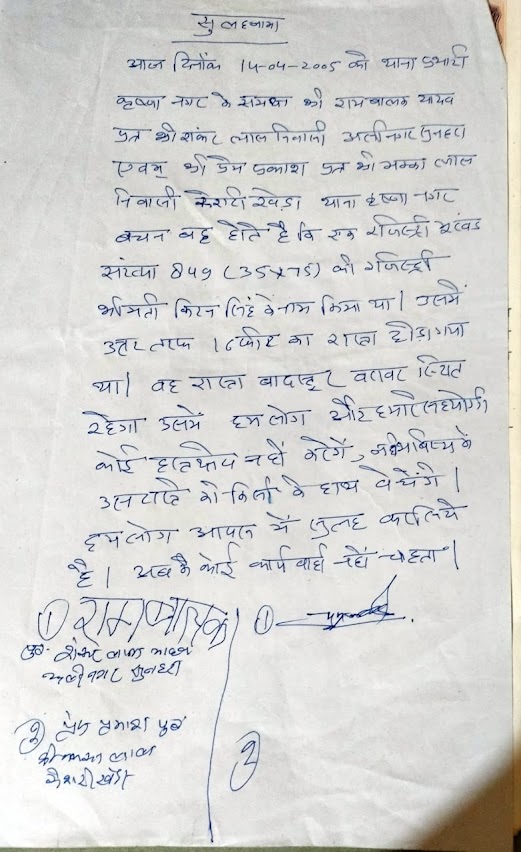 सुलहनामा
आज दिनांक 14-04-2005 को थाना प्रभारी
कृष्णा नगर के समक्ष श्री रामबालक यादव
पुत्र श्री शंकर लाल निवासी अलीनगर सुनहरा
एवम् श्री प्रेम प्रकाश पुत्र श्री लाल
निवासी केसरी खेड़ा थाना कृष्णा नगर
बचन बद्ध होते है कि एक रजिस्ट्री भूखंड
संख्या 849 (35x75) की रजिस्ट्री
श्रीमती किरन सिंह के नाम किया था। उसमें
उत्तर तरफ फीट का रास्ता छोड़ा गया
था। वह रास्ता बादस्तूर बराबर स्थित
रहेगा उसमें हम लोग और हमारे सहयोगी
कोई हस्तक्षेप नहीं करेगें, न भविष्य में
उस रास्ते को किसी के हाथ बेचेंगे।
हम लोग आपस में सुलह कर लिये
है। अब मै कोई कार्यवाही नहीं चाहता।
① रामबालक ①
पुत्र शंकर लाल यादव
अलीनगर सुनहरा
② प्रेम प्रकाश पुत्र ②
श्री लाल
केसरी खेड़ा